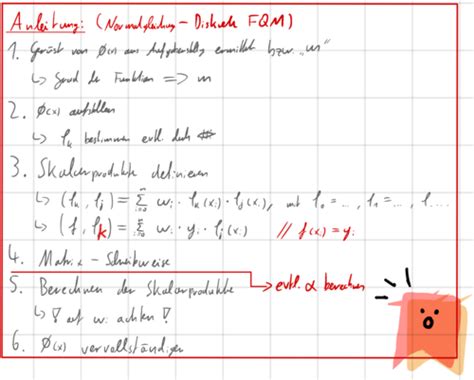 Anleitung: (Normalgleichung - Diskrete FQM)
1. Gerüst von Ø(x) aus Aufgabenstellg ermitteln bzw. "m"
↳ Grad der Funktion => m
2. Ø(x) aufstellen
↳ lₖ bestimmen evtl. durch
3. Skalarprodukte definieren
↳ (lₖ, lⱼ) = Σ wᵢ · lₖ(xᵢ) · lⱼ(xᵢ), mit l₀ = ..., l₁ = ..., l...
↳ (f, lₖ) = Σ wᵢ · yᵢ · lⱼ(xᵢ) // f(xᵢ) = yᵢ
4. Matrix - Schreibweise
5. Berechnen der Skalarprodukte → evtl. α berechnen
↳ ! auf wᵢ achten !
6. Ø(x) vervollständigen